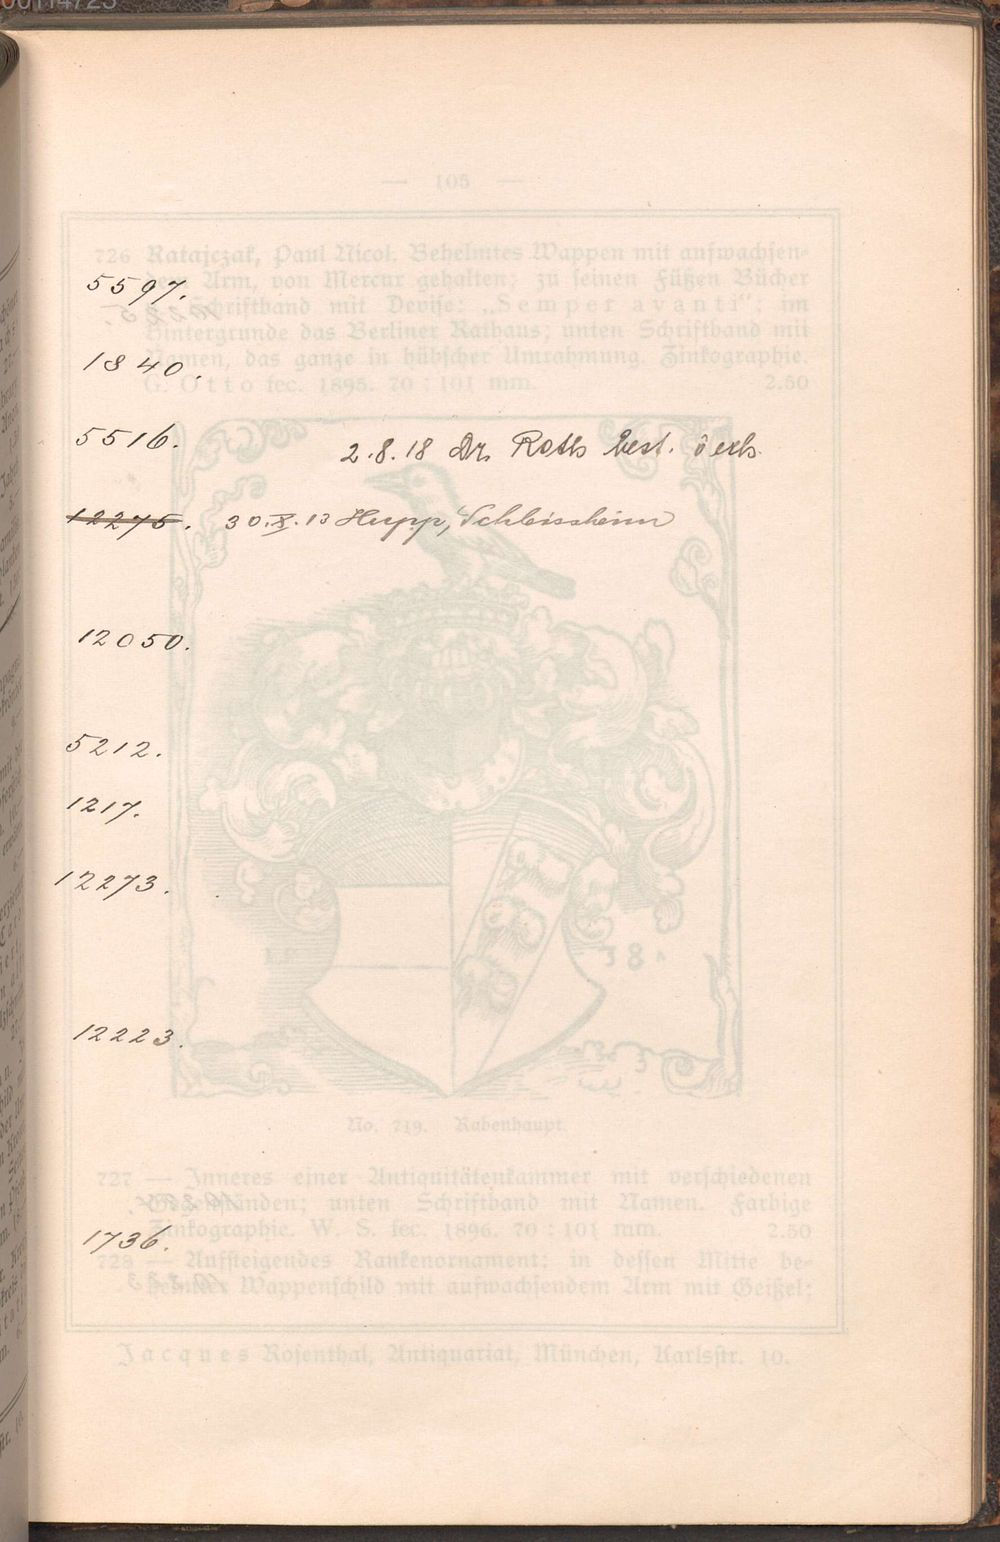 5597.
1840.
5516. 2.8.18 Dr. Roth best.
12275. 30.X.13 Hupp, Schleissheim
12050.
5212.
1217.
12273.
12223.
1736.
— 105 —
726 Ratajczak, Paul Nicol. Behelmtes Wappen mit aufwachsen-
dem Arm, von Mercur gehalten; zu seinen Füßen Bücher
Schriftband mit Devise: „Semper avanti“; im
Hintergrunde das Berliner Rathaus; unten Schriftband mit
Namen, das ganze in hübscher Umrahmung. Zinkographie.
G. Otto fec. 1895. 70 : 101 mm. 2.50
No. 719. Rabenhaupt.
727 — Inneres einer Antiquitätenkammer mit verschiedenen
Gegenständen; unten Schriftband mit Namen. Farbige
Zinkographie. W. S. fec. 1896. 70 : 101 mm. 2.50
728 — Aufsteigendes Rankenornament: in dessen Mitte be-
helmter Wappenschild mit aufwachsendem Arm mit Geißel;
Jacques Rosenthal, Antiquariat, München, Karlstr. 10.